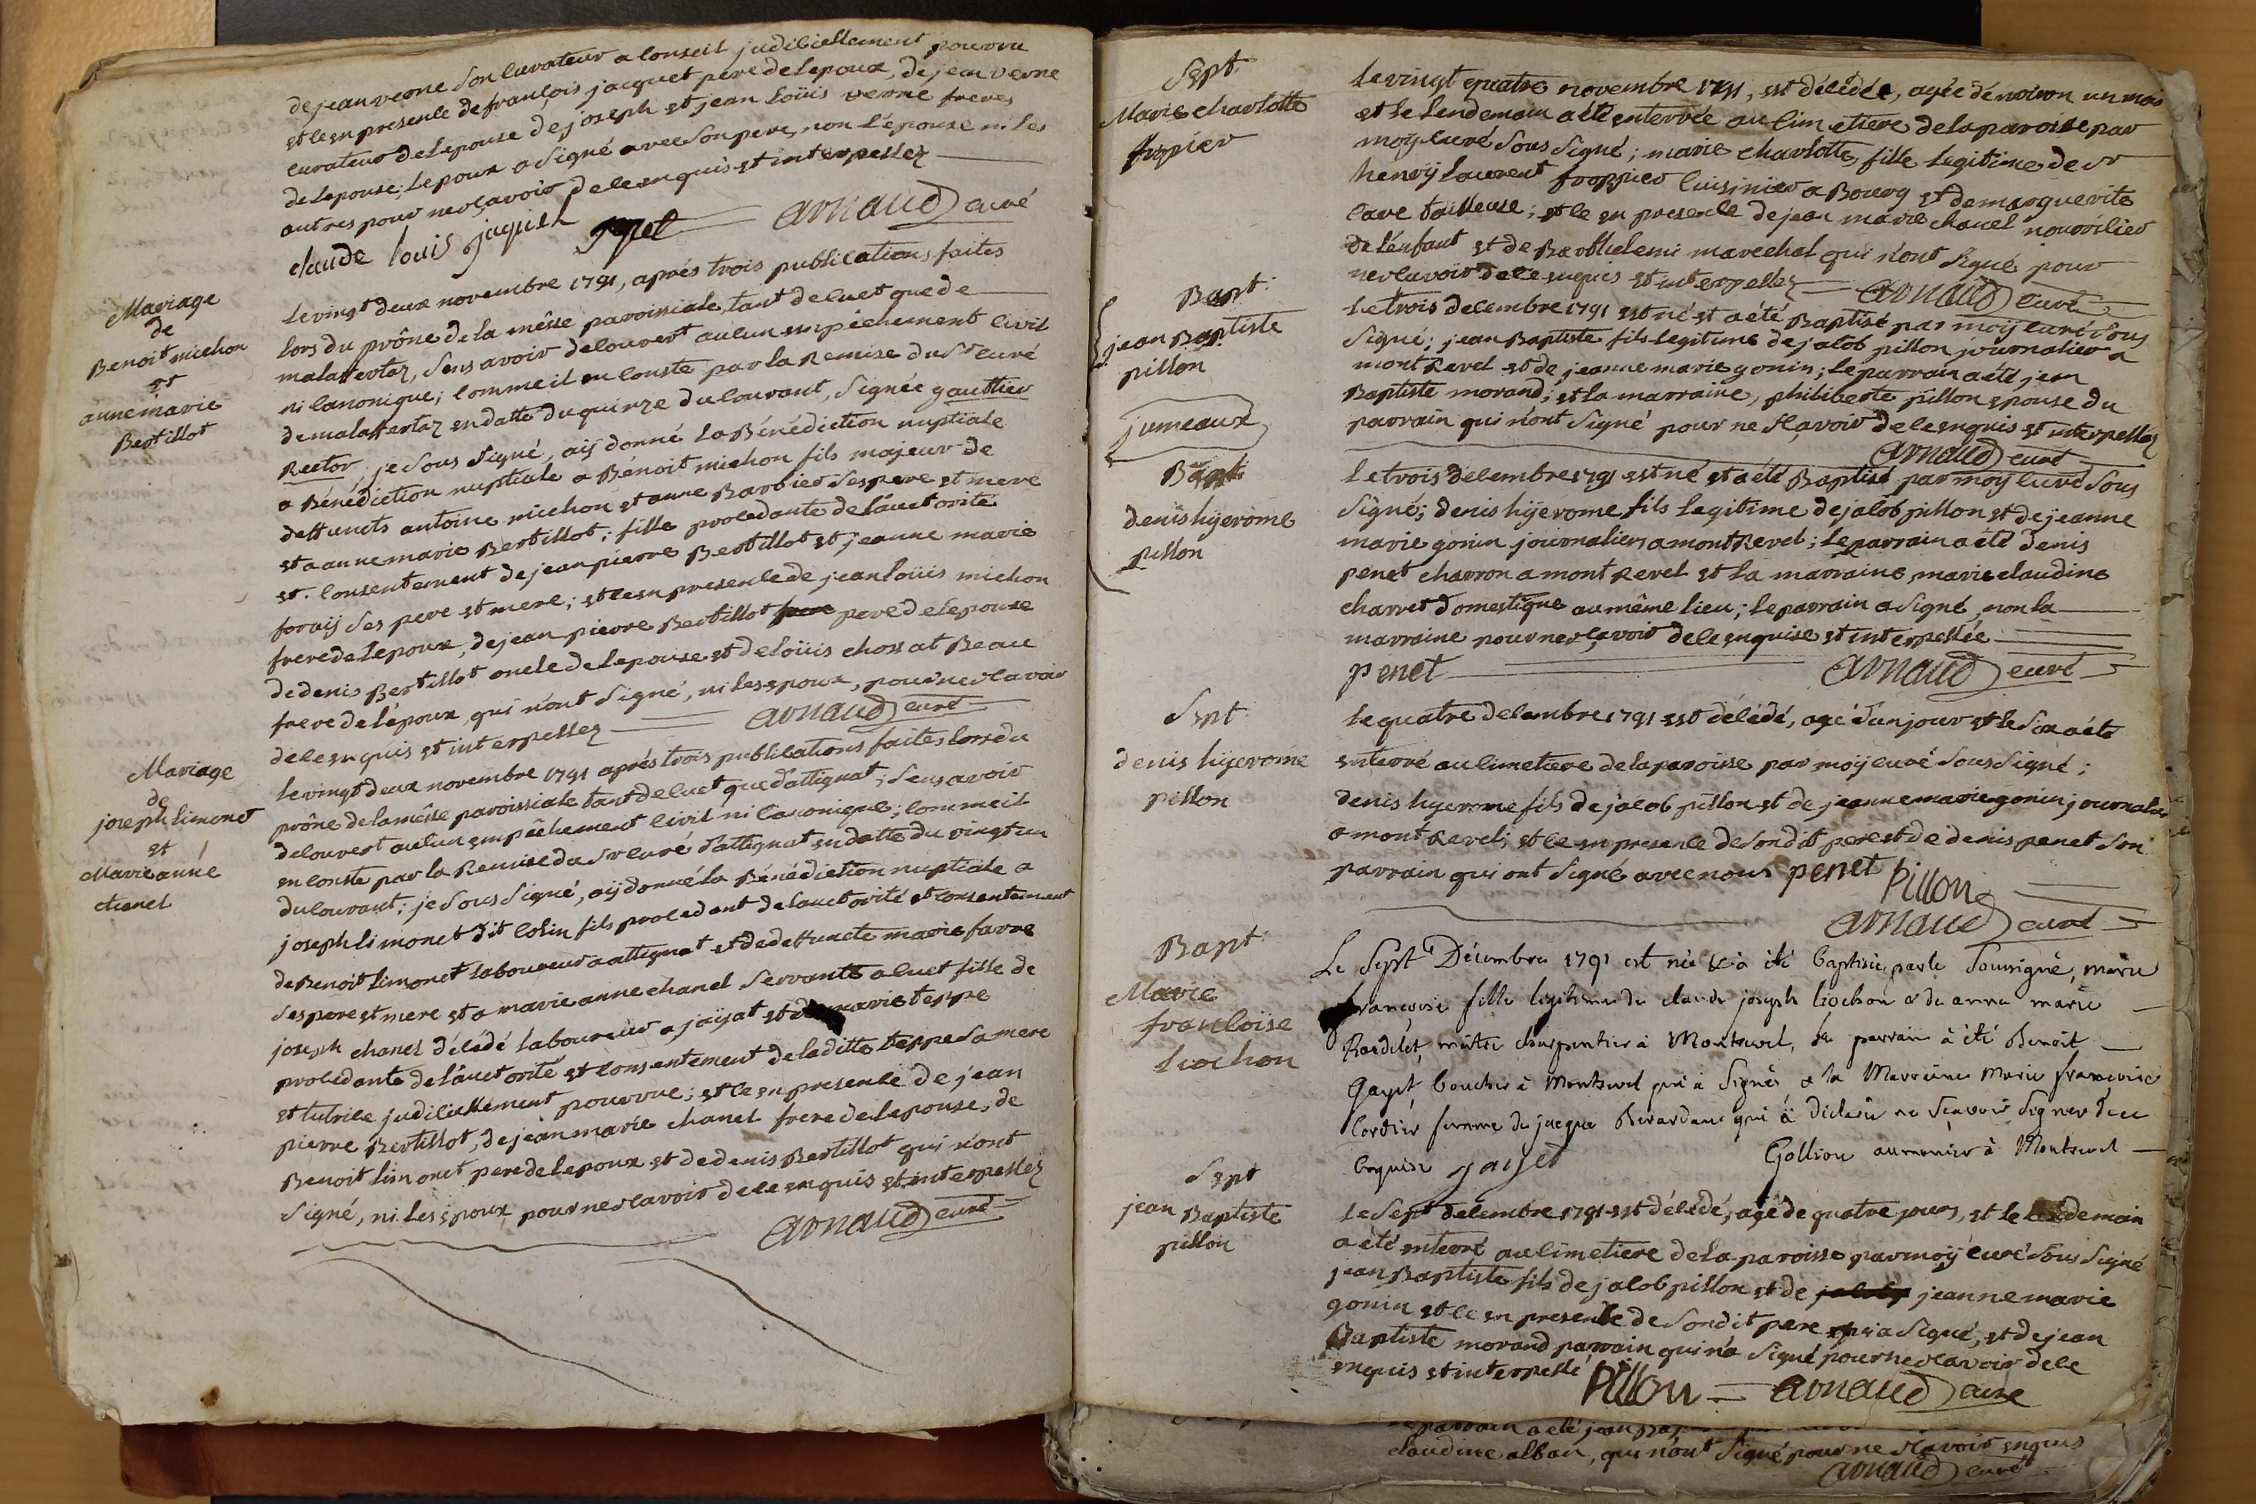 de jean verne son curateur a conseil judiciellement pourvu
et ce en presence de françois jacquet pere de lepoux, de jean verne
curateur de lepouse de joseph et jean loüis verne freres
de lepouse; lepoux a signé avec son pere, non l'epouse ni les
autres pour ne sçavoir de ce enquis et interpellez
claude louis jaquieh
arnaud curé
Mariage
de
Benoit michon
et
anne marie
Bertillot
le vingt deux novembre 1791, aprés trois publications faites
lors du prône de la mésse paroissiale, tant de cuet que de
malaffertaz, sens avoir decouvert aucun empêchement civil
ni canonique; comme il en conste par la Remise du Sr curé
de malaffertaz en datte du quinze du courant, signée gauttier
Rector. je sous signé, aij donné la Bénédiction nuptiale
a Bénédiction nuptiale a Bénoit michon fils majeur de
deffuncts antoine michon et anne Barbier ses pere et mere
et a anne marie Bertillot; fille procedante de l'auctorité
et consentement de jean pierre Bertillot et jeanne marie
foraij ses pere et mere; et ce en presence de jean loüis michon
frere de lepoux, de jean pierre Bertillot pere de lepouse
de denis Bertillot oncle de lepouse et de loüis chossat Beau
frere de l'époux, qui n'ont signé, ni les epoux, pour ne scavoir
de ce enquis et interpellez
arnaud curé
Mariage
de
joseph limonet
et
Marie anne
chanel
le vingt deux novembre 1791 aprés trois publications faites lors du
prône de la mésse paroissiale tant de cuet que d'attignat; sens avoir
decouvert aucun empêchement civil ni canonique; comme il
en conste par la Remise du Sr curé d'attignat en datte du vingt un
du courant; je sous signé, aij donné la Bénédiction nuptiale a
joseph limonet dit colin fils procedant de l'auctorité et consentement
de Benoit limonet laboureur a attignat et de deffuncte marie favre
ses pere et mere et a marie anne chanel servante a cuet fille de
joseph chanel décédé laboureur a jaÿat et de marie teppe
procedante de l'auctorité et consentement de la ditte teppe sa mere
et tutrice judiciellement pourvue; et ce en presence de jean
pierre Bertillot, de jean marie chanel frere de lepouse, de
Benoit limonet pere de lepoux et de denis Bertillot qui n'ont
signé, ni les époux, pour ne scavoir de ce enquis et interpellez
arnaud curé
Sept.
Marie charlotte
fropier
le vingt quatre novembre 1791, est décédée, agée d'environ un mois
et le lendemain a été enterrée au cimetiere de la paroisse par
moij curé sous signé; marie charlotte, fille legitime de Sr
henrij laurent froppier cuisinier a Bourg et de marguerite
cave tailleuse; et ce en presence de jean marie chanel nourricier
de l'enfant et de Barthelemi marechal qui n'ont signé pour
ne scavoir de ce enquis et interpellez
arnaud curé
Bapt.
jean Baptiste
pillon
le trois decembre 1791 est né et a été Baptisé par moij curé sous
signé; jean Baptiste fils legitime de jacob pillon journalier a
montRevel et de jeanne marie gonin; le parrain a été jean
Baptiste morand; et la marraine, philiberte pillon epouse du
parrain qui n'ont signé pour ne sçavoir de ce enquis et interpellez
arnaud curé
jumeaux
Bapt.
denis hÿerome
pillon
Le trois decembre 1791 est né et a été Baptisé par moij curé sous
signé; denis hÿerome fils legitime de jacob pillon et de jeanne
marie gonin journaliers a montRevel; le parrain a été denis
penet charron a montRevel et la marraine, marie claudine
charvet domestique au même lieu; le parrain a signé, non la
marraine pour ne sçavoir de ce enquise et interpellée
penet
arnaud curé
Sept.
denis hÿerome
pillon
le quatre decembre 1791 est décédé, agé d'un jour et le six a été
enterré au cimetiere de la paroisse par moij curé sous signé;
denis hyerome fils de jacob pillon et de jeanne marie gonin journaliers
a montRevel; et ce en presence de son dit pere et de denis penet son
parrain qui ont signé avec nous
penet
Pillon
arnaud curé
Bapt.
Marie
françoise
liochon
Le Sept Décembre 1791 est née & a été baptisée par le Soussigné, marie
françoise fille légitime de claude joseph liochon & de anne marie
Raudelet, maître charpentier à Montrevel, le parrain à été Benoît
Gayet, boucher à Montrevel qui a Signé & la Marraine Marie françoise
Cordier femme de jacque Berardant qui à déclaré ne Scavoir Signer de ce
Enquise
gayet
Gollion aumonier à Montrevel
Sept.
jean Baptiste
pillon
le Sept decembre 1791 est décédé, agé de quatre jours, et le lendemain
a été enterré au cimetiere de la paroisse par moij curé sous signé
jean Baptiste fils de jacob pillon et de jeanne marie
gonin et ce en presence de son dit pere qui a signé, et de jean
Baptiste morand parrain qui n'a signé pour ne scavoir de ce
enquis et interpellé
Pillon
arnaud curé
le parrain a été jean
claudine alban, qui n'ont signé pour ne sçavoir enquis
arnaud curé